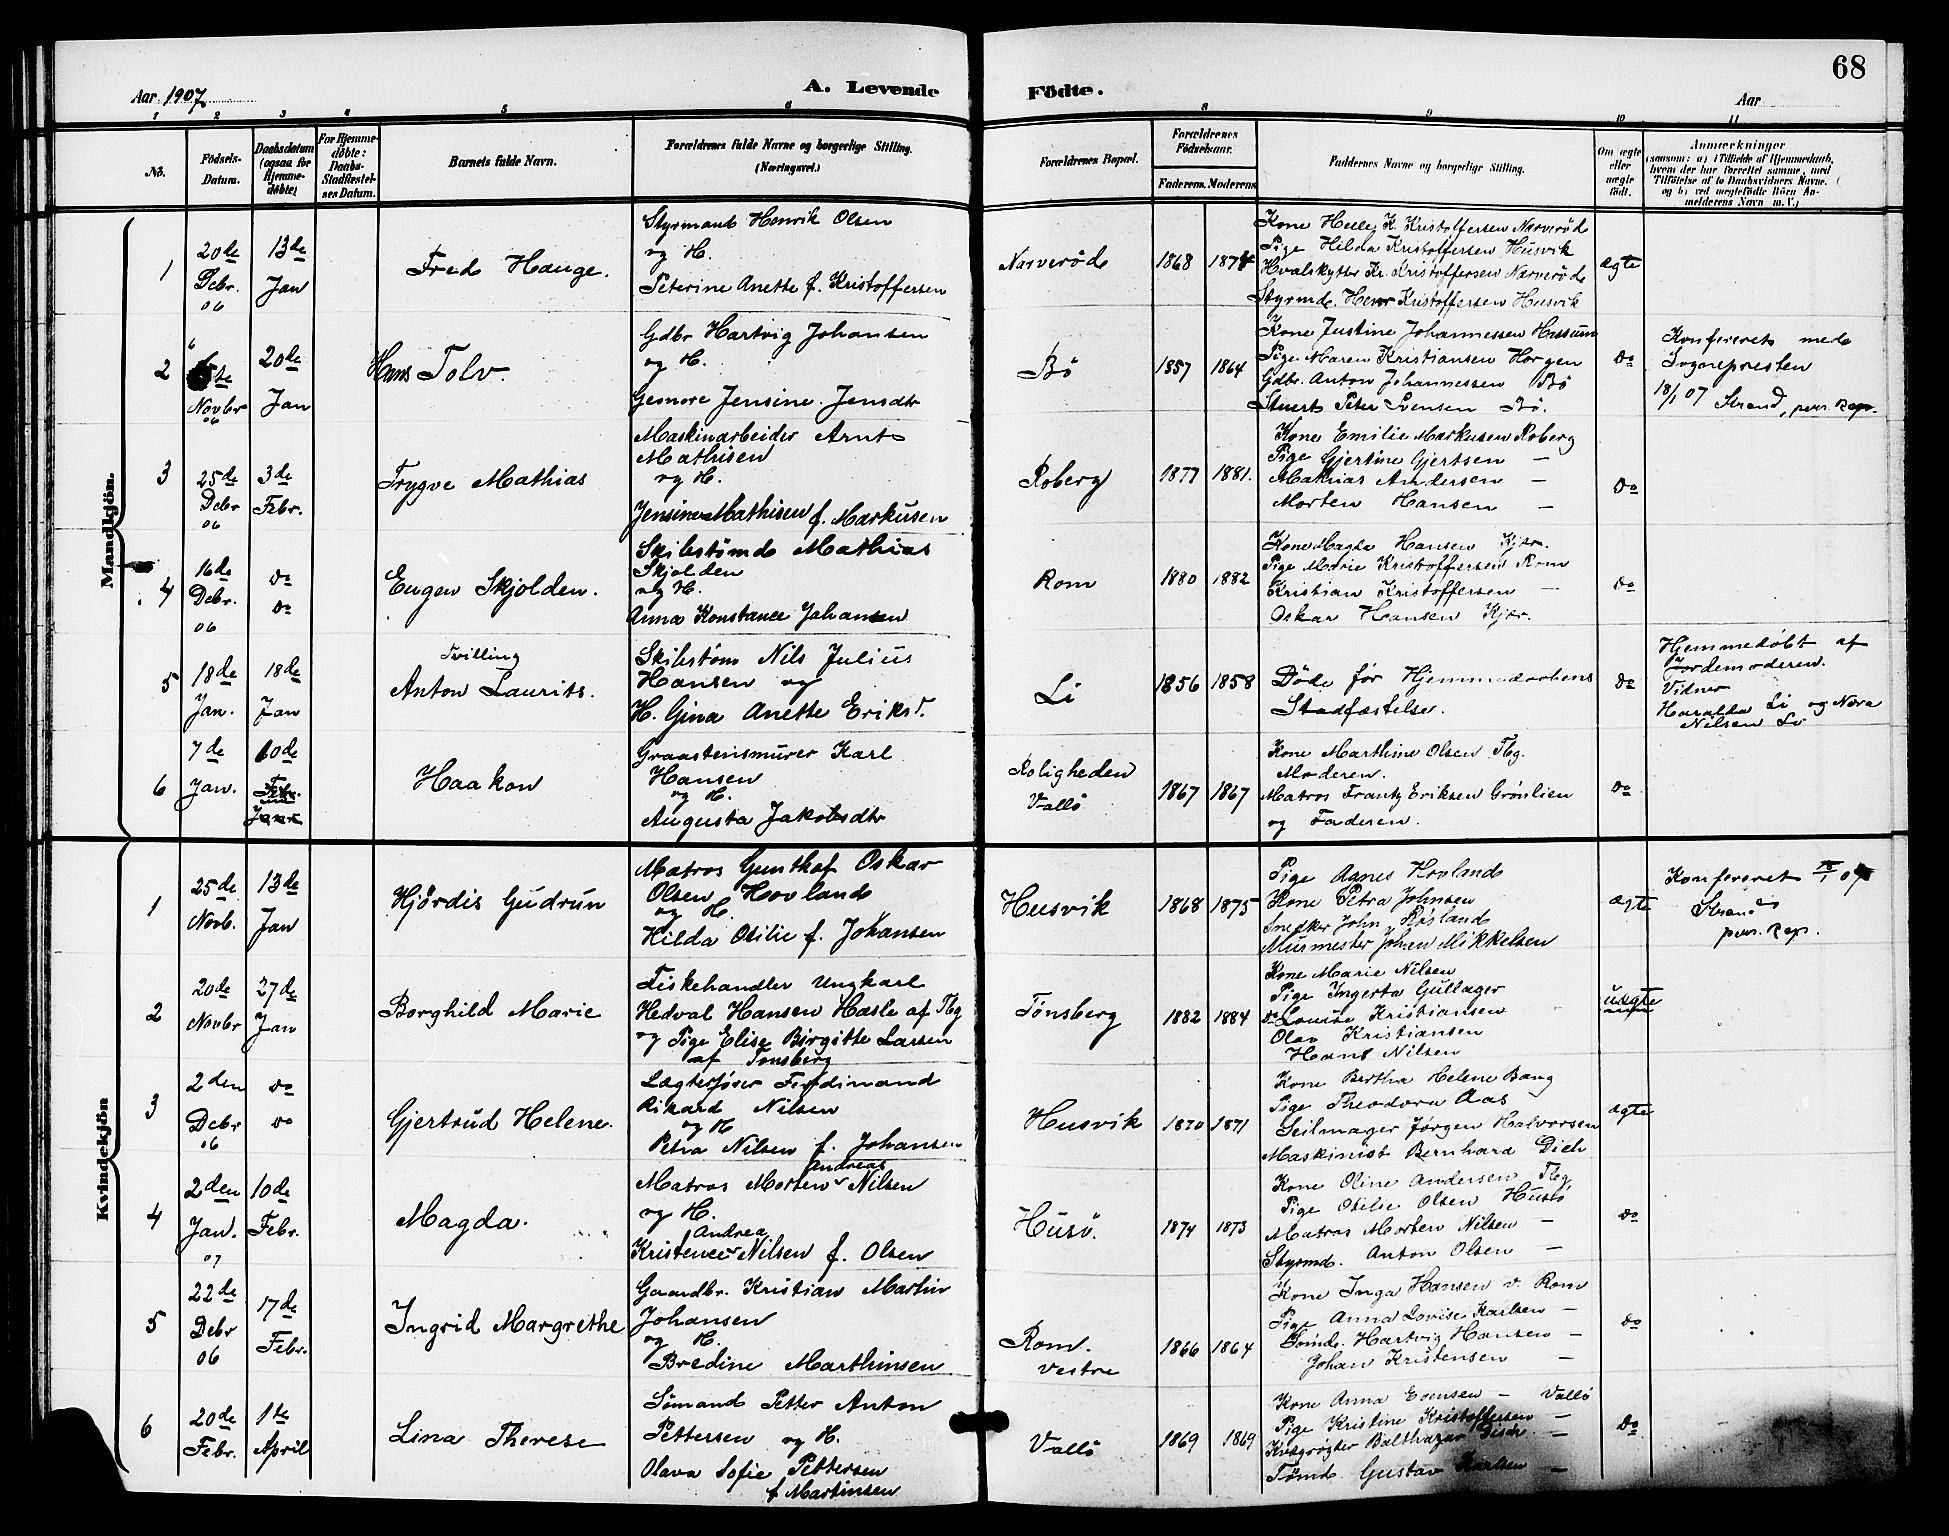 68
Aar 1907
A. Levende
Födte.
Aar
1 2 3 4 5 6 8 9 10 11
No.
Födsels-Datum.
Daabsdatum (ogsaa for Hjemme-döbte)
For Hjemme-döbte: Daabs-Stadfæstel-ses Datum.
Barnets fulde Navn.
Forældrenes fulde Navne og borgerlige Stilling. (Næringsvei.)
Forældrenes Bopæl.
Forældrenes Födselsaar.
Faderens. Moderens
Faddernes Navne og borgerlige Stilling.
Om ægte eller uægte födt.
Anmærkninger
(saasom: a) i Tilfælde af Hjemmedaab,
hvem der har forrettet samme, med
Tilföielse af to Daabsvidners Navne.
og b) ved uægtefödte Börn An-
melderens Navn m. V.)
Mandkjön.
1
20de Debr. 06
13de Jan
Fred Hauge.
Styrmand Henrik Olsen
og H.
Peterine Anette f. Kristoffersen
Narverød
1868 1874
Kone Helle K. Kristoffersen Narverød
Pige Hilda Kristoffersen Husvik
Hvalskytter Kr. Kristoffersen Narverød
Styrmd. Henr Kristoffersen Husvik
ægte
2
6te Novbr 06
20de Jan
Hans Tolv.
Gdbr Hartvig Johansen
og H.
Jensine Jensdtr
Bø
1857 1864
Kone Justine Johannessen Hussum
Pige Maren Kristiansen Horgen
Gdbr. Anton Johannessen Bø
Stuert Peter Svensen Bø.
do
Konfereret med
Sognepresten
18/1 07 Strand, pers. Kap.
3
25de Debr 06
3de Febr.
Trygve Mathias
Maskinarbeider Arnt
Mathisen
og H.
Jensine Mathisen f. Markusen
Roberg
1877 1881.
Kone Emilie Markusen Roberg
Pige Gjertine Gjertsen —
Mathias Andersen —
Morten Hansen —
do
4
16de Debr. 06
do do
Eugen Skjolden.
Skibstømd Mathias
Skjolden
og H.
Anna Konstance Johansen
Rom
1880 1882
Kone Magda Hansen Kjbr.
Pige Marie Kristoffersen Rom
Kristian Kristoffersen —
Oskar Hansen Kjbr.
do
5
18de Jan.
18de Jan
Tvilling
Anton Laurits.
Skibstøm Nils Julius
Hansen og
H. Gina Anette Eriksd.
Li
1856 1858
Døde før Hjemmedaabens
Stadfæstelse.
do
Hjemmedøbt af
Jordemoderen.
Vidner
Haralda Li og Nora
Nilsen Li
6
7de Jan.
10de Febr.
Haakon
Graastensmurer Karl
Hansen
og H.
Augusta Jakobsdtr
Roligheden
Vallø
1867 1867
Kone Marthine Olsen Tbg.
Moderen.
Matros Frantz Eriksen Grønlien
og Faderen.
do
Kvindekjön
1
25de Novb.
13de Jan
Hjördis Gudrun
Matros Gunthof Oskar
Olsen Hovland
og H.
Hilda Otilie f. Johansen
Husvik
1868 1875
Pige Agnes Hovland
Kone Petra Johnsen
Snedker John Røsland
Murmester Johan Mikkelsen
ægte
Konfereret 07
Strand
pers. Kap.
2
20de Novbr
27de Jan
Borghild Marie
Fiskehandler Ungkarl
Hedval Hansen Hasle af Tbg
og Pige Elise Birgitte Larsen
af Tønsberg
Tønsberg
1882 1884
Kone Marie Nilsen
Pige Ingerta Gullager
do Louise Kristiansen
Olav Kristiansen
Hans Nilsen
uægte
3
2den Debr 06
do do
Gjertrud Helene.
Lægterfører Ferdinand
Rikard Nilsen
og H
Petra Nilsen f. Johansen
Husvik
1870 1871
Kone Bertha Helene Bang
Pige Theodora Aas
Seilmager Jørgen Halvorsen
Maskinist Bernhard Dich
ægte
4
2den Jan. 07
10de Febr.
Magda.
Andreas
Matros Morten Nilsen
og H.
Andrea
Kristence Nilsen f. Olsen
Husø.
1874 1873
Kone Oline Andersen Tbg
Pige Otilie Olsen Husø
Matros Morten Nilsen —
Styrmd. Anton Olsen —
do
5
22de Debr 06
17de Febr.
Ingrid Margrethe
Gaardbr. Kristian Martin
Johansen
og H.
Bredine Marthinsen
Rom.
vestre
1866 1864
Kone Inga Hansen v. Rom
Pige Anna Lovise Karlsen —
Tømd. Hartvig Hansen —
Johan Kristensen —
do
6
20de Febr.
1te April
Lina Therese
Sømand Petter Anton
Pettersen og H.
Olava Sofie Pettersen
f Martinsen
Vallø
1869 1869
Kone Anna Evensen — Vallø
Pige Kristine Kristoffersen —
Kvægrøgter Balthazar Disch —
Tømd. Gustav Karlsen —
do